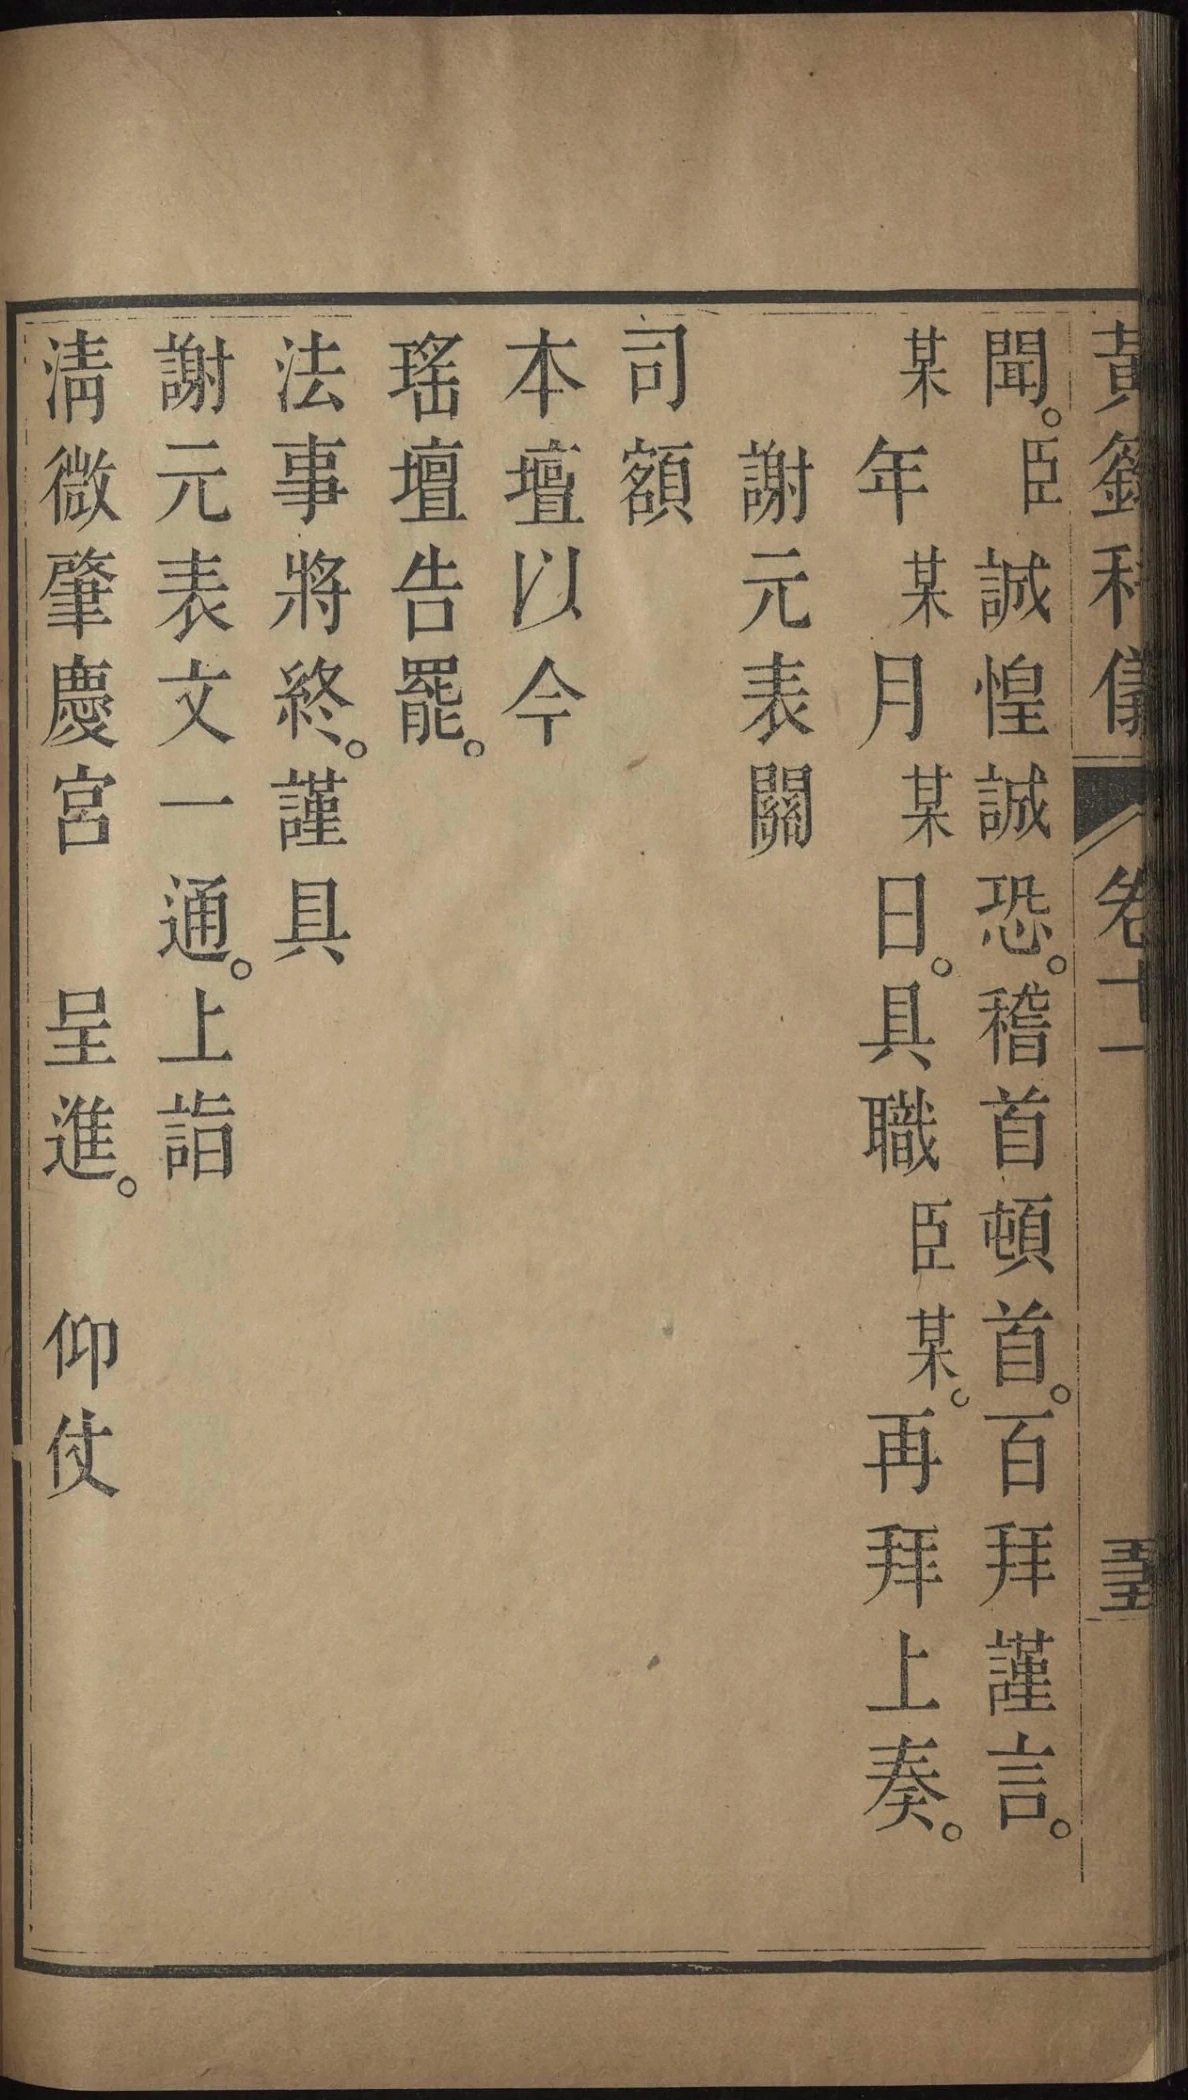 黃籙科儀 卷十一
聞。臣誠惶誠恐。稽首頓首。百拜謹言。
某年某月某日。具職臣某。再拜上奏。
謝元表關
司額
本壇以今
瑤壇告罷。
法事將終。謹具
謝元表文一通。上詣
淸微肇慶宮 呈進。 仰仗